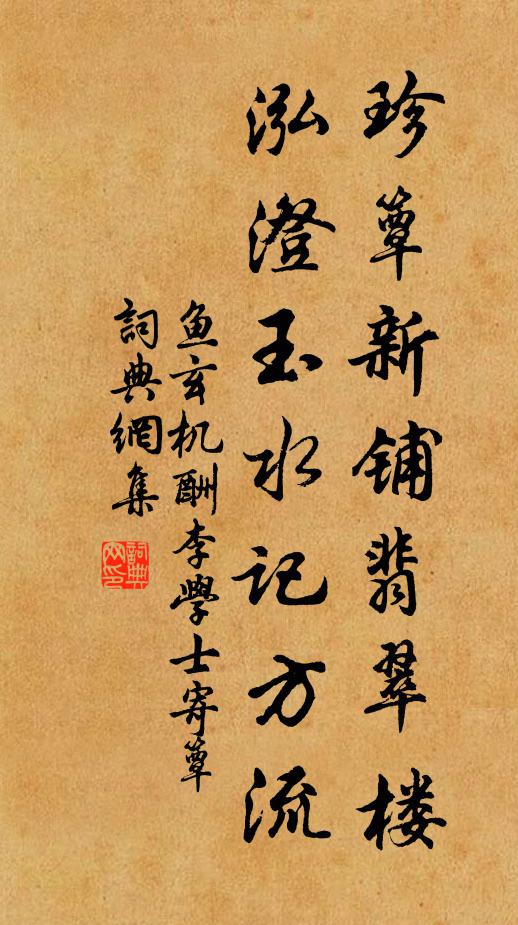 珍簟新铺翡翠楼
泓澄玉水记方流
鱼玄机酬李學士寄簟
詞典網集
詞典网印